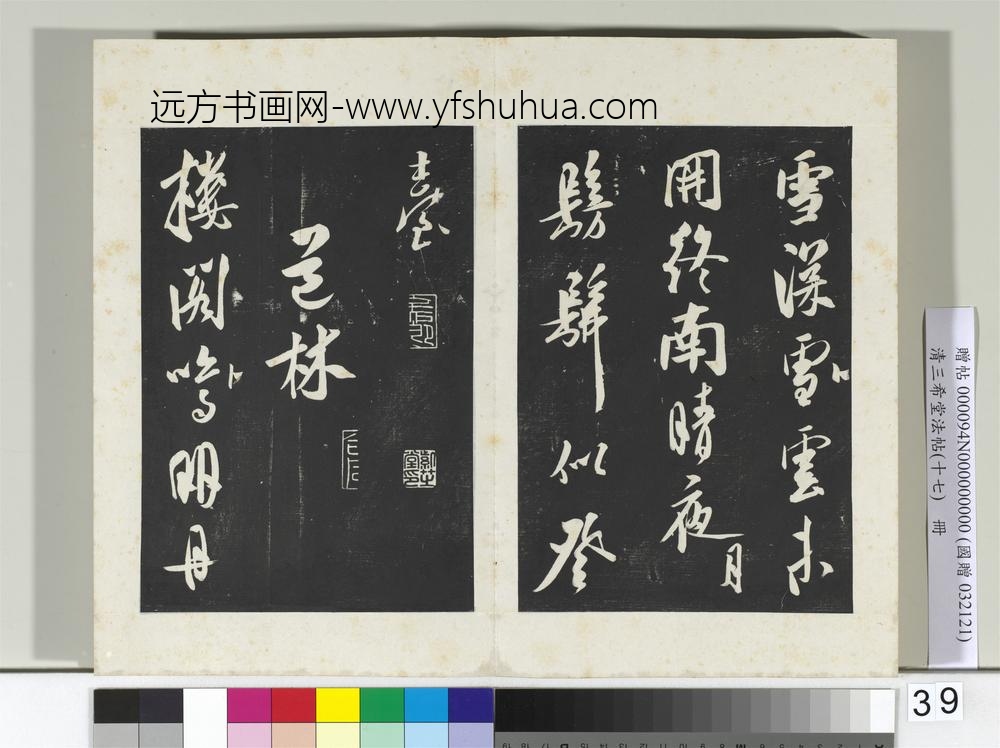 远方书画网-www.yfshuhua.com
雪深雪雲未
開終南晴夜月
髣髴似登
臺
林
樓閣鳴明丹
贈帖 000094N000000000 (國贈 032121)
清三希堂法帖(十七) 冊
39